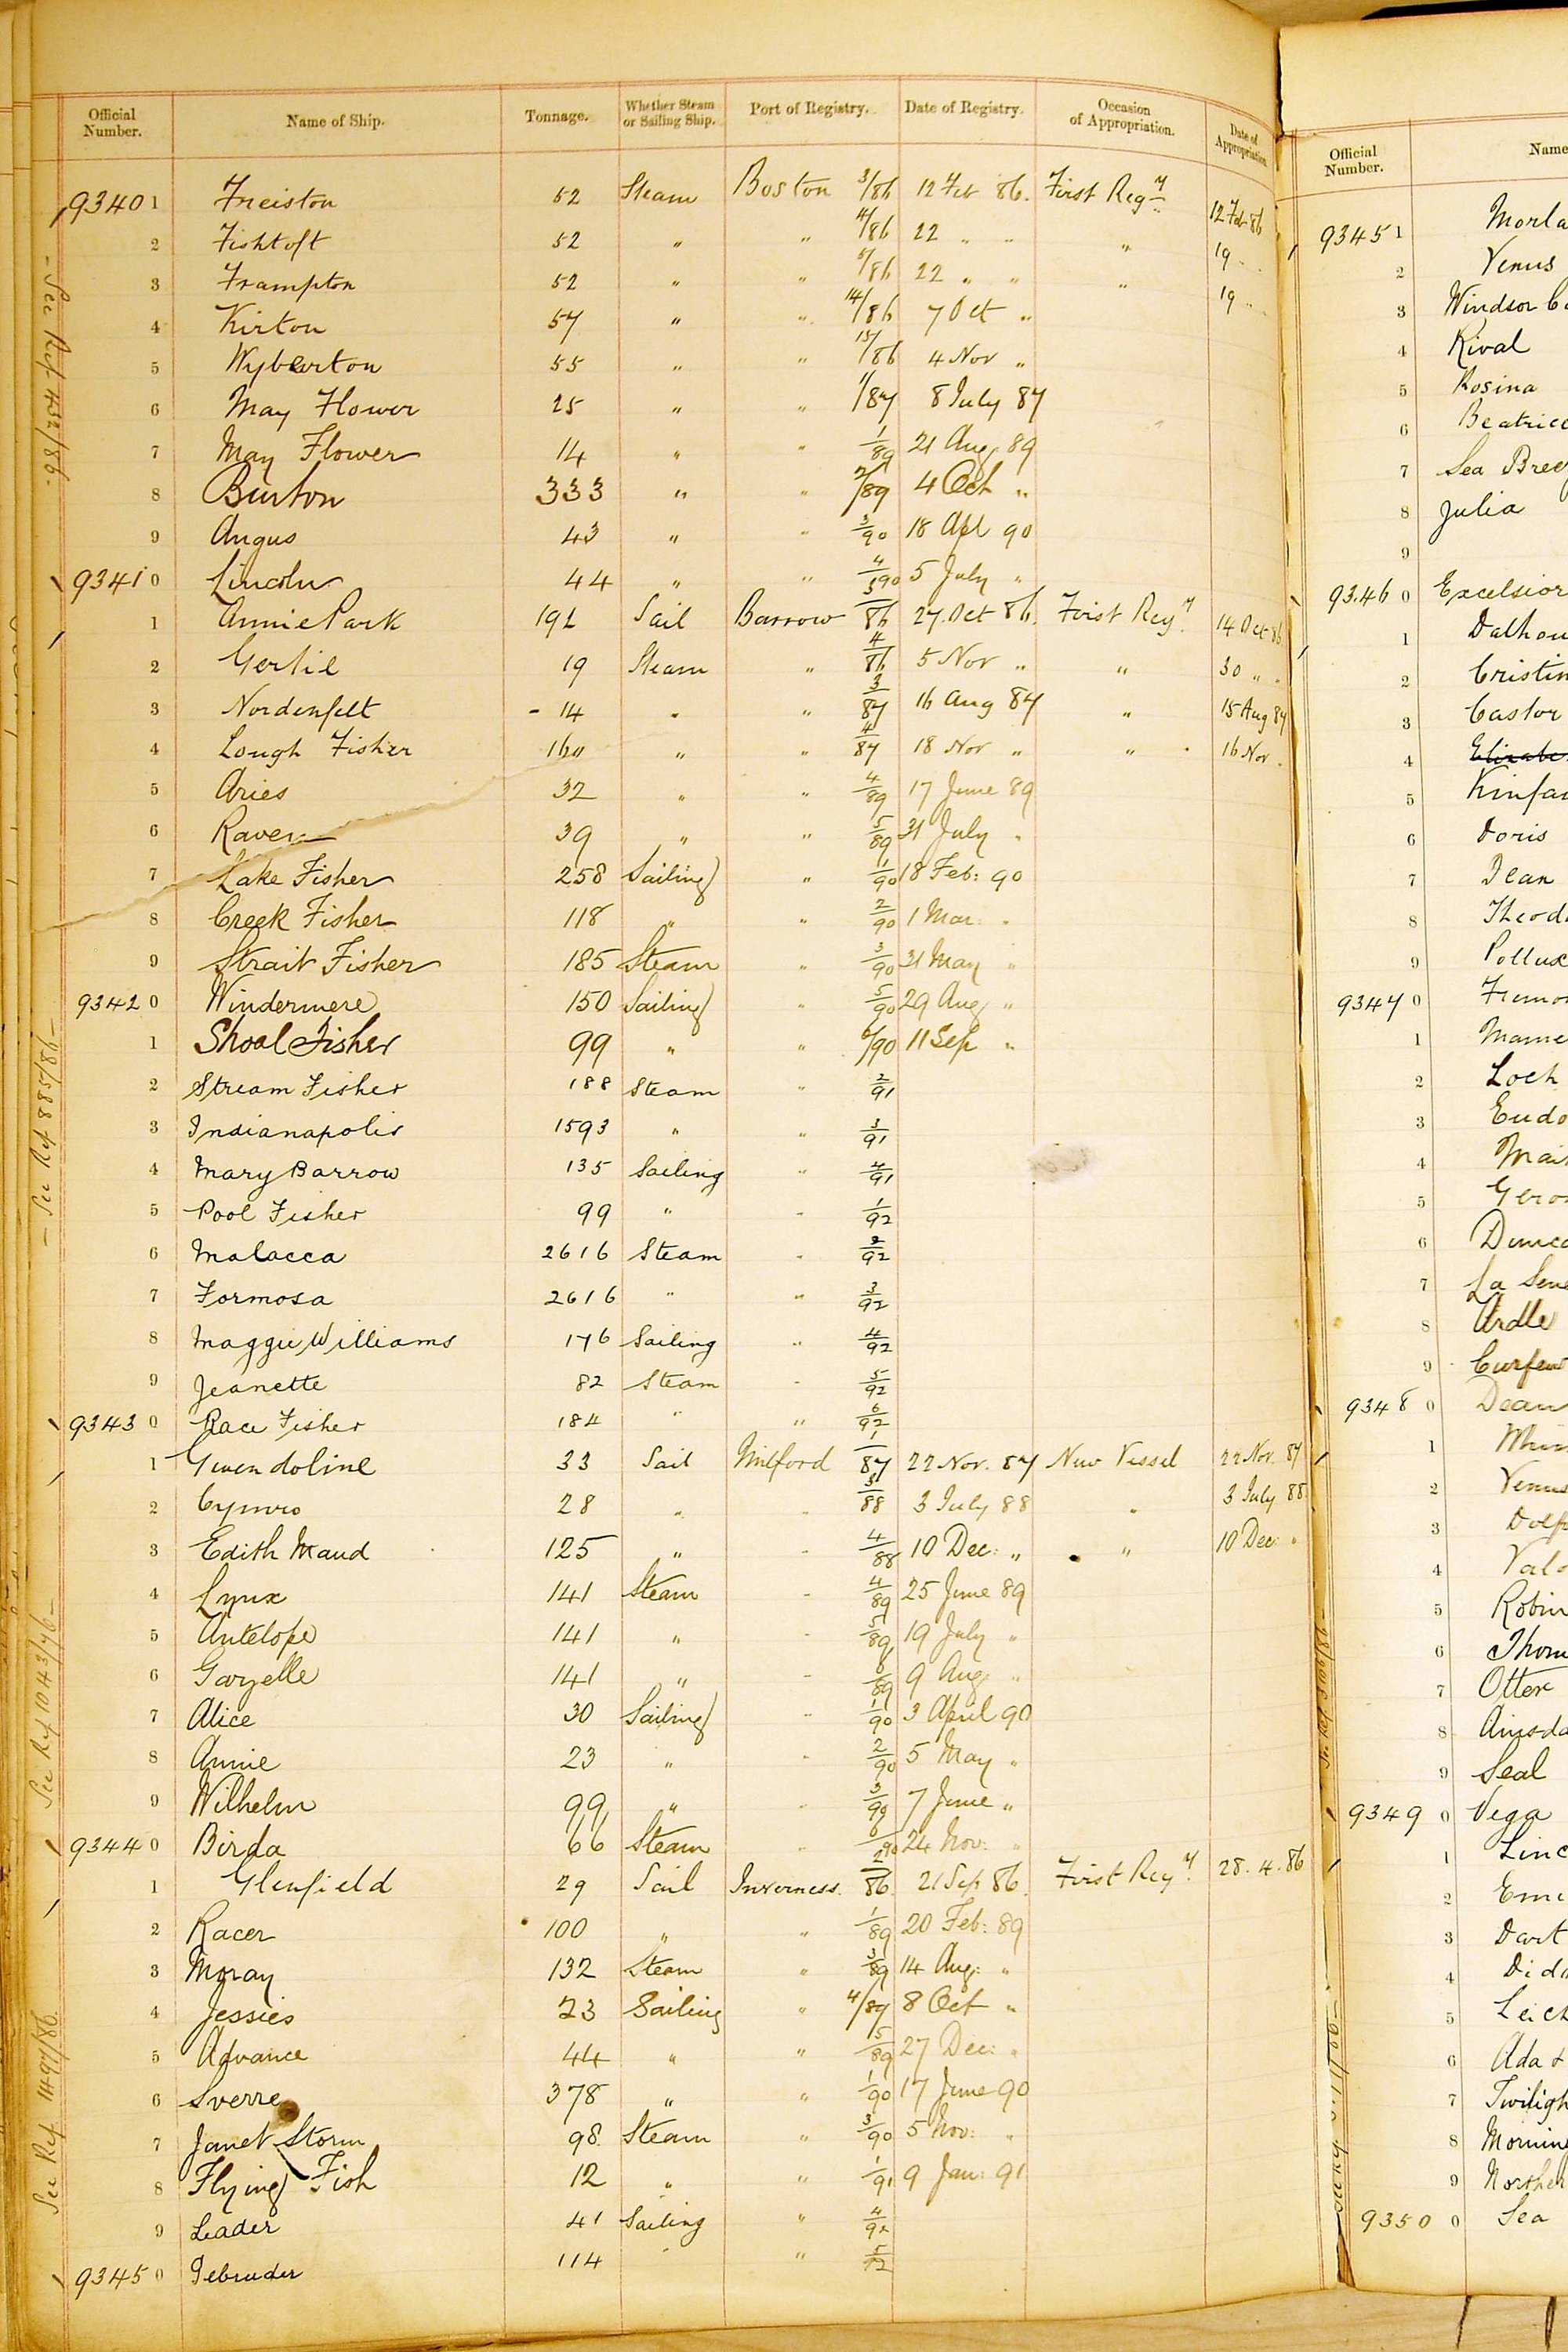 Official Number. Name of Ship. Tonnage. Whether Steam or Sailing Ship. Port of Registry. Date of Registry. Occasion of Appropriation. Date of Appropriation.
93401 Freiston 52 Steam Boston 3/86 12 Feb 86. First Regy 12 Feb 86
2 Fishtoft 52 " " 4/86 22 " " " 19 " "
3 Frampton 52 " " 5/86 22 " " " 19 " "
4 Kirton 57 " " 14/86 7 Oct "
5 Wyberton 55 " " 15/86 4 Nov "
6 May Flower 25 " " 1/87 8 July 87
7 May Flower 14 " " 1/89 21 Aug 89
8 Burton 333 " " 2/89 4 Oct "
9 Angus 43 " " 3/90 18 Apl 90
93410 Lincoln 44 " " 4/90 5 July "
1 Annie Park 192 Sail Barrow 3/86 27 Oct 86. First Regy 14 Oct 86
2 Gertie 19 Steam " 4/86 5 Nov " " 30 " "
3 Nordenfelt - 14 " " 3/87 16 Aug 87 " 15 Aug 87
4 Lough Fisher 160 " " 4/87 18 Nov " " 16 Nov "
5 Aries 32 " " 4/89 17 June 89
6 Raven 39 " " 5/89 31 July "
7 Lake Fisher 258 Sailing " 1/90 18 Feb: 90
8 Creek Fisher 118 " " 2/90 1 Mar: "
9 Strait Fisher 185 Steam " 3/90 31 May "
93420 Windermere 150 Sailing " 5/90 29 Aug "
1 Shoal Fisher 99 " " 6/90 11 Sep "
2 Stream Fisher 188 Steam " 2/91
3 Indianapolis 1593 " " 3/91
4 Mary Barrow 135 Sailing " 4/91
5 Pool Fisher 99 " " 1/92
6 Malacca 2616 Steam " 2/92
7 Formosa 2616 " " 3/92
8 Maggie Williams 176 Sailing " 4/92
9 Jeanette 82 Steam " 5/92
93430 Race Fisher 184 " " 6/92
1 Gwendoline 33 Sail Milford 1/87 22 Nov. 87 New Vessel 22 Nov. 87
2 Cymro 28 " " 3/88 3 July 88 " 3 July 88
3 Edith Maud 125 " " 4/88 10 Dec: " " 10 Dec: "
4 Lynx 141 Steam " 4/89 25 June 89
5 Antelope 141 " " 5/89 19 July "
6 Gazelle 141 " " 6/89 9 Aug "
7 Alice 30 Sailing " 1/90 3 April 90
8 Annie 23 " " 2/90 5 May "
9 Wilhelm 99 " " 3/90 7 June "
93440 Birda 66 Steam " 6/90 24 Nov: "
1 Glenfield 29 Sail Inverness. 2/86 21 Sep 86. First Regy 28.4.86
2 Racer 100 " " 1/89 20 Feb: 89
3 Moray 132 Steam " 3/89 14 Aug: "
4 Jessies 23 Sailing " 4/89 8 Oct "
5 Advance 44 " " 5/89 27 Dec: "
6 Sverre 378 " " 1/90 17 June 90
7 Janet Storm 98 Steam " 3/90 5 Nov: "
8 Flying Fish 12 " " 1/91 9 Jan: 91
9 Leader 41 Sailing " 4/92
93450 Gebruder 114 " " 5/92
- See Ref 452/86.
- See Ref 885/86 -
See Ref 1043/86 -
See Ref 1497/86.
Official Number. Name
93451 Morla
2 Venus
3 Windsor Ca
4 Rival
5 Rosina
6 Beatrice
7 Sea Bree
8 Julia
9
93460 Excelsior
1 Dalhou
2 Cristin
3 Castor
4 Elizabe
5 Kinfau
6 Doris
7 Jean
8 Theod
9 Pollux
93470
1 Mame
2 Loch
3 Eudo
4 Mair
5 Gero
6 Dunca
7 La Sene
8 Ardle
9 Curfew
93480 Dean
1
2 Venus
3 Dolf
4 Val
5 Robin
6 Thom
7 Otter
8 Ainsda
9 Seal
93490 Vega
1 Linc
2 Em
3 Dart
4 Did
5 Leich
6 Ada &
7 Twiligh
8 Mornin
9 Northe
93500 Sea